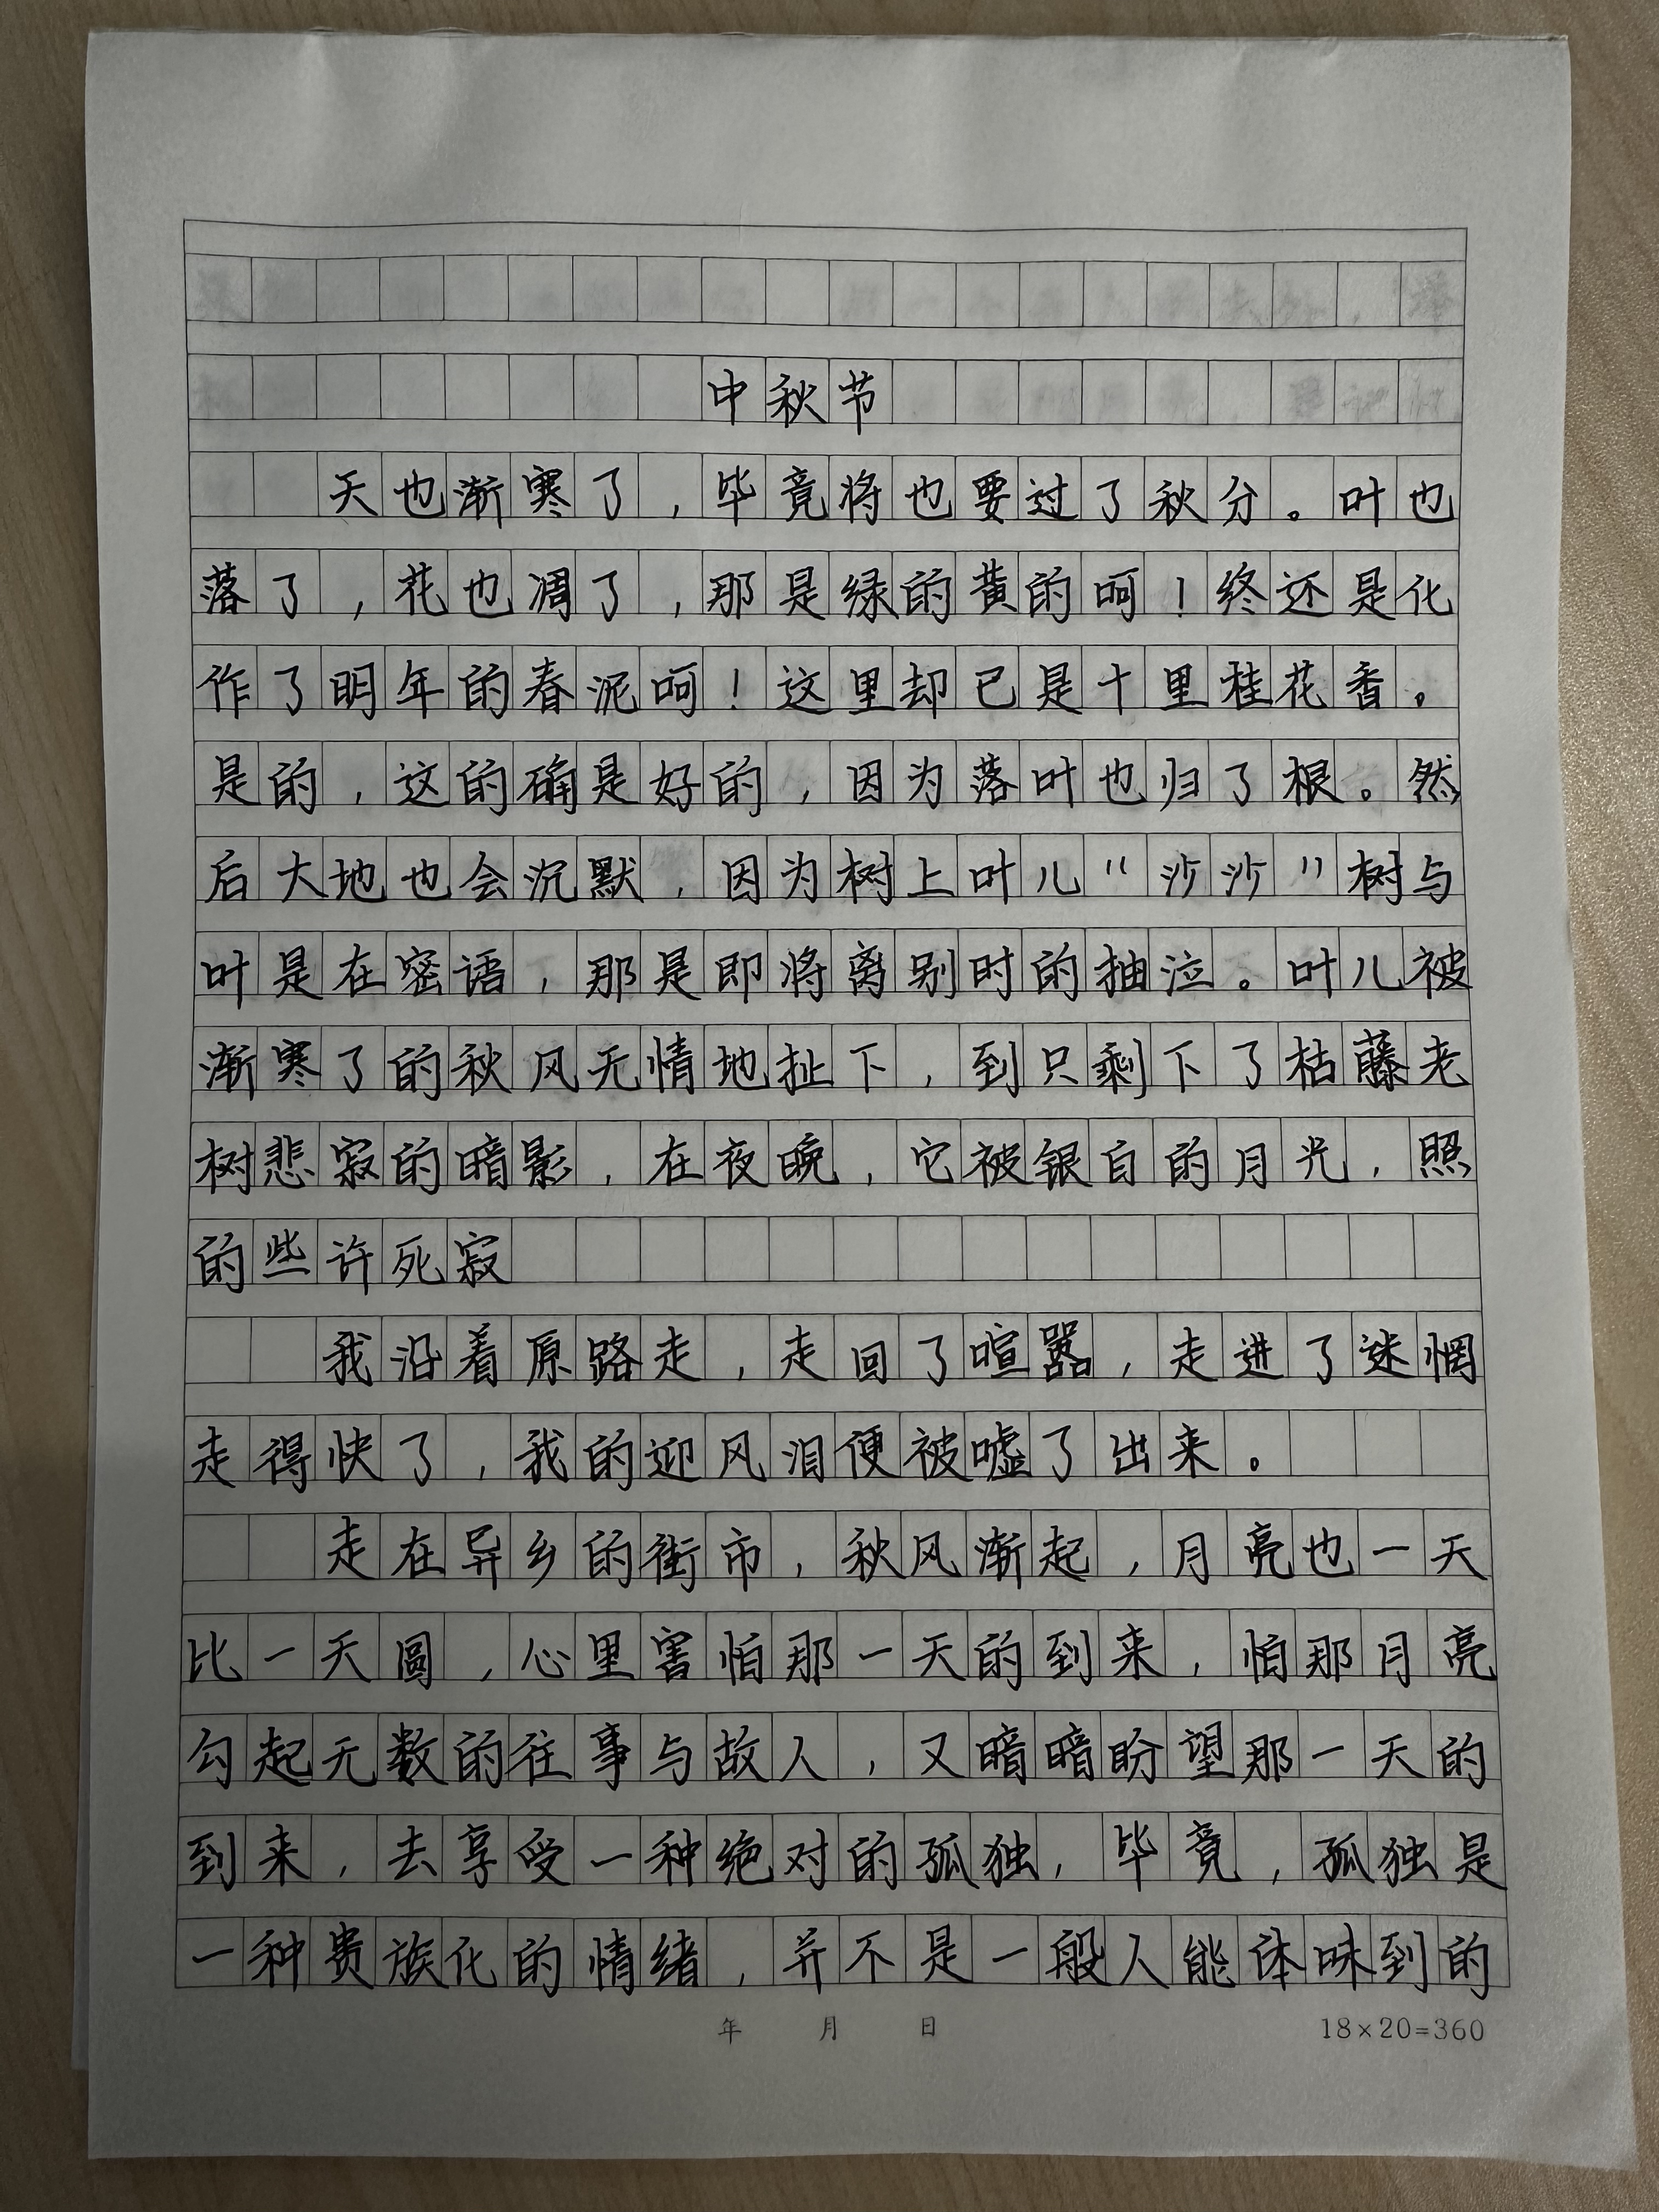 中秋节
天也渐寒了，毕竟将也要过了秋分。叶也
落了，花也凋了，那是绿的黄的呵！终还是化
作了明年的春泥呵！这里却已是十里桂花香。
是的，这的确是好的，因为落叶也归了根。然
后大地也会沉默，因为树上叶儿“沙沙”树与
叶是在密语，那是即将离别时的抽泣。叶儿被
渐寒了的秋风无情地扯下，到只剩下了枯藤老
树悲寂的暗影，在夜晚，它被银白的月光，照
的些许死寂
我沿着原路走，走回了喧嚣，走进了迷惘
走得快了，我的迎风泪便被嘘了出来。
走在异乡的街市，秋风渐起，月亮也一天
比一天圆，心里害怕那一天的到来，怕那月亮
勾起无数的往事与故人，又暗暗盼望那一天的
到来，去享受一种绝对的孤独，毕竟，孤独是
一种贵族化的情绪，并不是一般人能体味到的
年 月 日 18×20=360